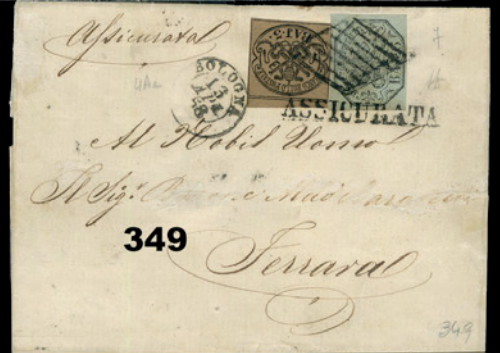 Assicurata
BAI·3·
7
4Aa
BOLOGNA
13
AP
58
ASSICURATA
Al Nobil Uomo
Il Sigr.
349
Ferrara
349